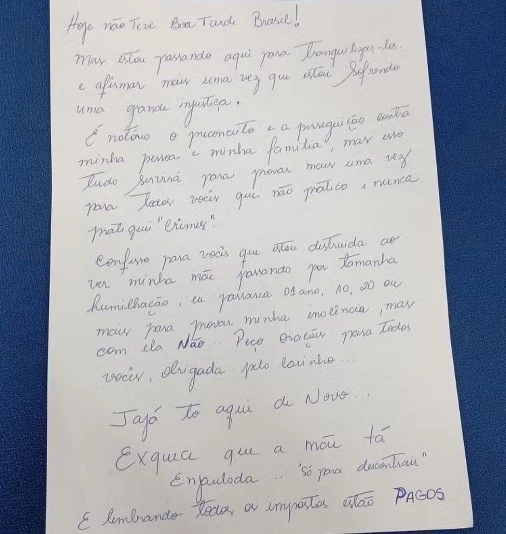 Hoje não Teve Boa Tarde Brasil!
Mas estou passando aqui para Tranquilizar-los
e afirmar mais uma vez que estou Sofrendo
uma grande injustiça.
É notório o preconceito e a perseguição contra
minha pessoa e minha família, mas isso
tudo Servirá para provar mais uma vez
para Todos vocês que não pratico e nunca
pratiquei "Crimes".
Confesso para vocês que estou distruida ao
ver minha mãe passando por tamanha
humilhação, eu passaria 01 ano, 10, 20 ou
mais para provar minha inocência, mas
com ela Não.. Peço orações para todos
vocês, Obrigada pelo Carinho...
Jajá to aqui de Novo...
Exquece que a mãe tá
Enjaulada.. "só para descontrair"
E lembrando todos os impostos estão PAGOS